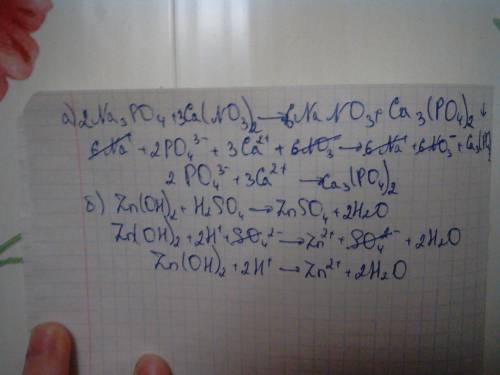 а) 2Na₃PO₄ + 3Ca(NO₃)₂ → 6NaNO₃ + Ca₃(PO₄)₂ ↓
6Na⁺ + 2PO₄³⁻ + 3Ca²⁺ + 6NO₃⁻ → 6Na⁺ + 6NO₃⁻ + Ca₃(PO
2PO₄³⁻ + 3Ca²⁺ → Ca₃(PO₄)₂
б) Zn(OH)₂ + H₂SO₄ → ZnSO₄ + 2H₂O
Zn(OH)₂ + 2H⁺ + SO₄²⁻ → Zn²⁺ + SO₄²⁻ + 2H₂O
Zn(OH)₂ + 2H⁺ → Zn²⁺ + 2H₂O